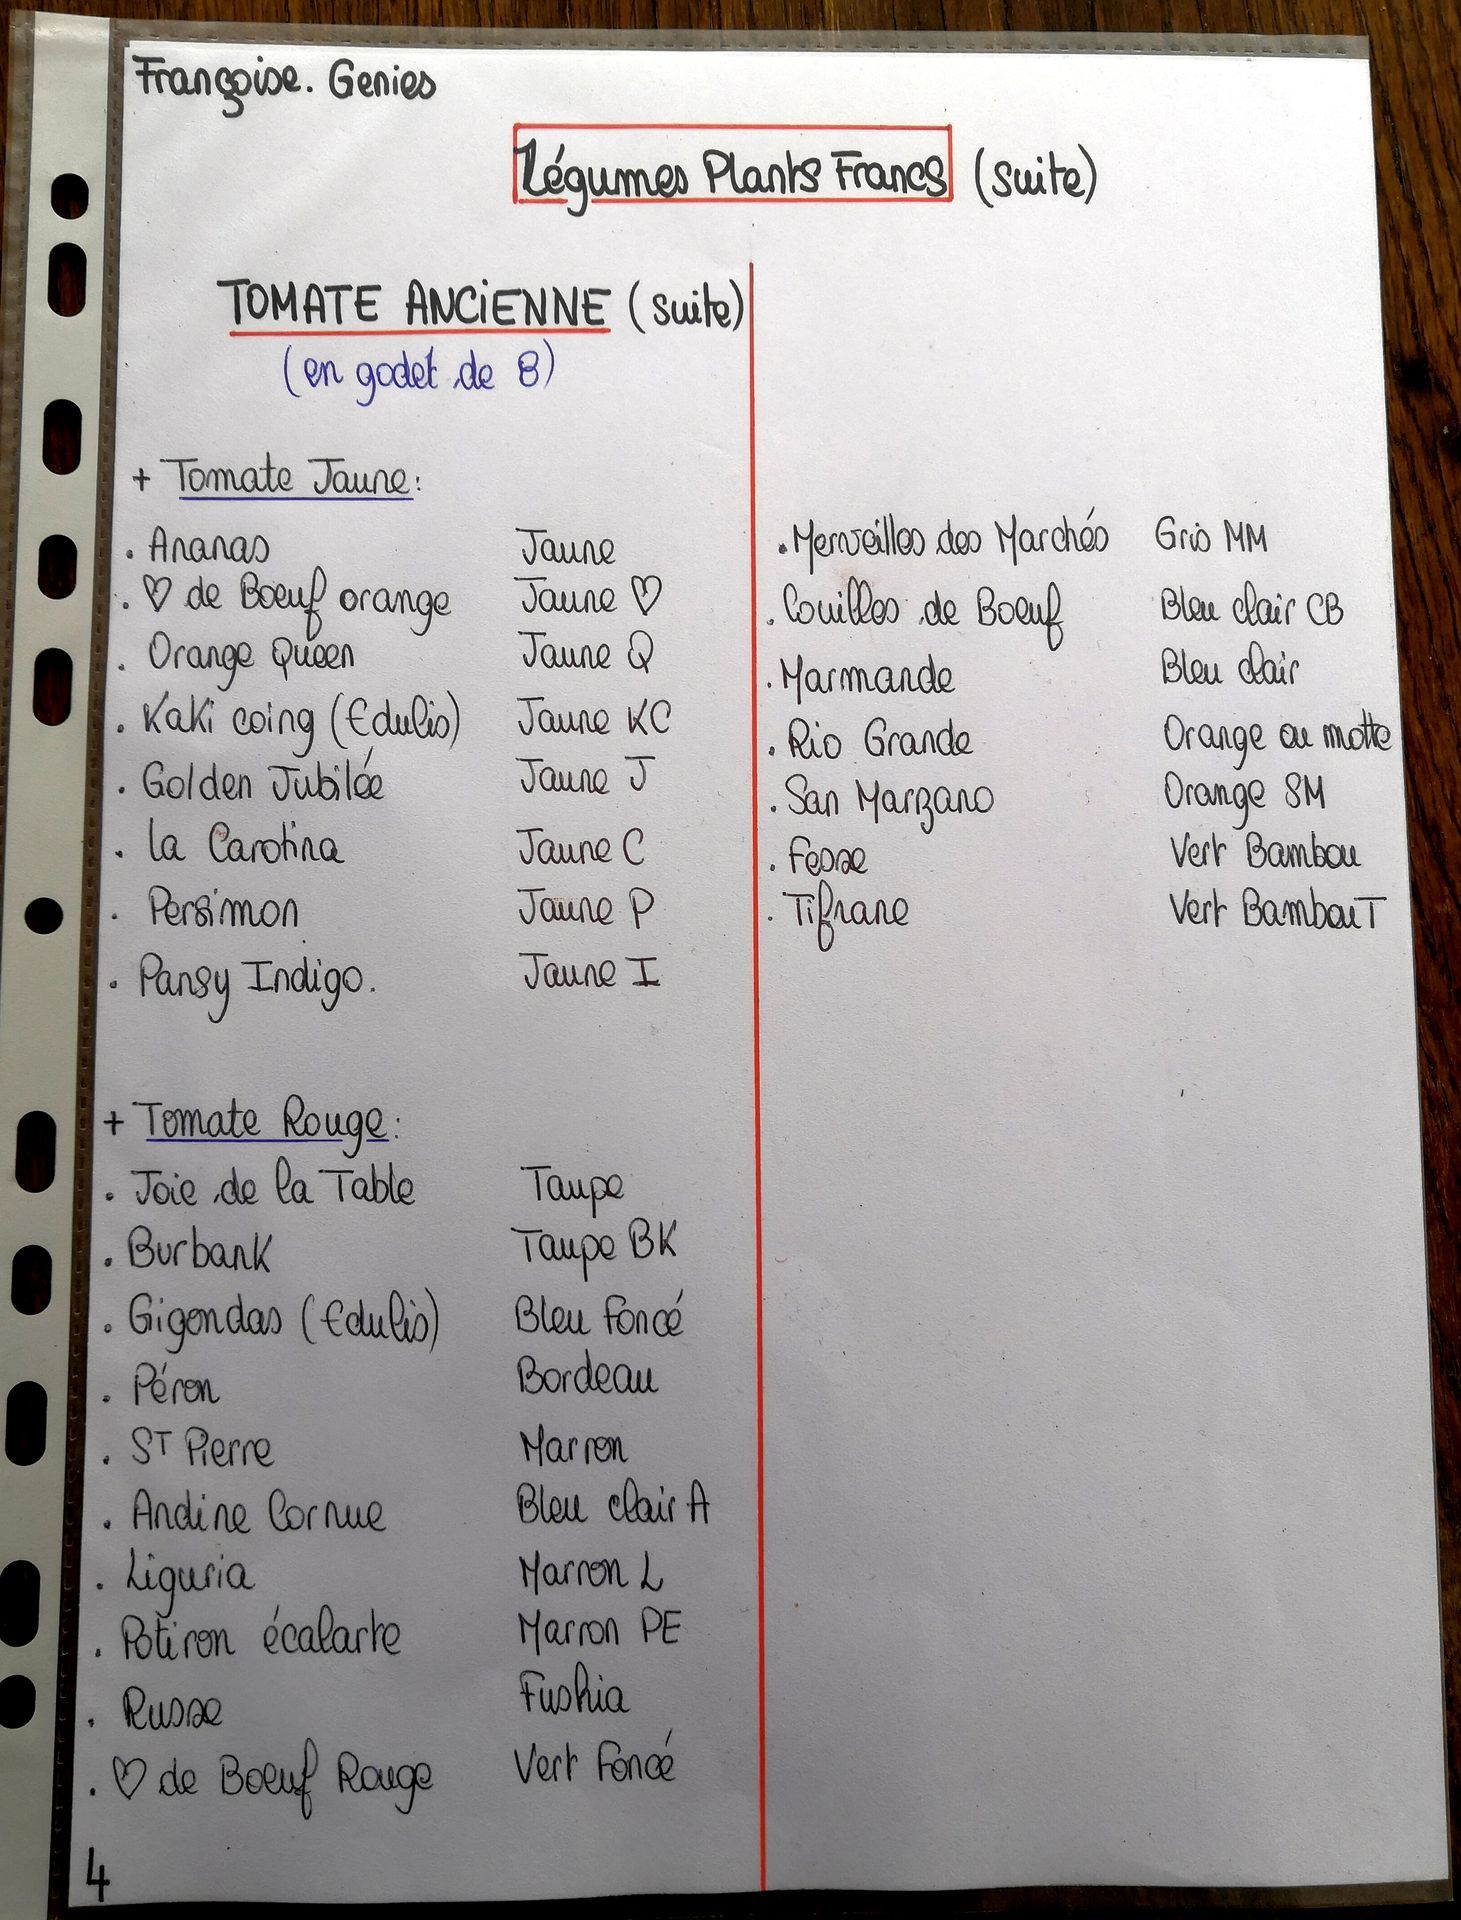 Françoise. Genies
Légumes Plants Francs (suite)
TOMATE ANCIENNE (suite)
(en godet de 8)
+ Tomate Jaune:
. Ananas Jaune
. ♡ de Boeuf orange Jaune ♡
. Orange Queen Jaune Q
. Kaki coing (Edulis) Jaune KC
. Golden Jubilée Jaune J
. La Carotina Jaune C
. Persimon Jaune P
. Pansy Indigo. Jaune I
+ Tomate Rouge:
. Joie de la Table Taupe
. Burbank Taupe BK
. Gigondas (Edulis) Bleu Foncé
. Péron Bordeau
. ST Pierre Marron
. Andine Cornue Bleu clair A
. Liguria Marron L
. Potiron écalarte Marron PE
. Russe Fushia
. ♡ de Boeuf Rouge Vert Foncé
. Merveilles des Marchés Gris MM
. Couilles de Boeuf Bleu clair CB
. Marmande Bleu clair
. Rio Grande Orange ou motte
. San Marzano Orange SM
. Fesse Vert Bambou
. Tifrane Vert Bambou T
4